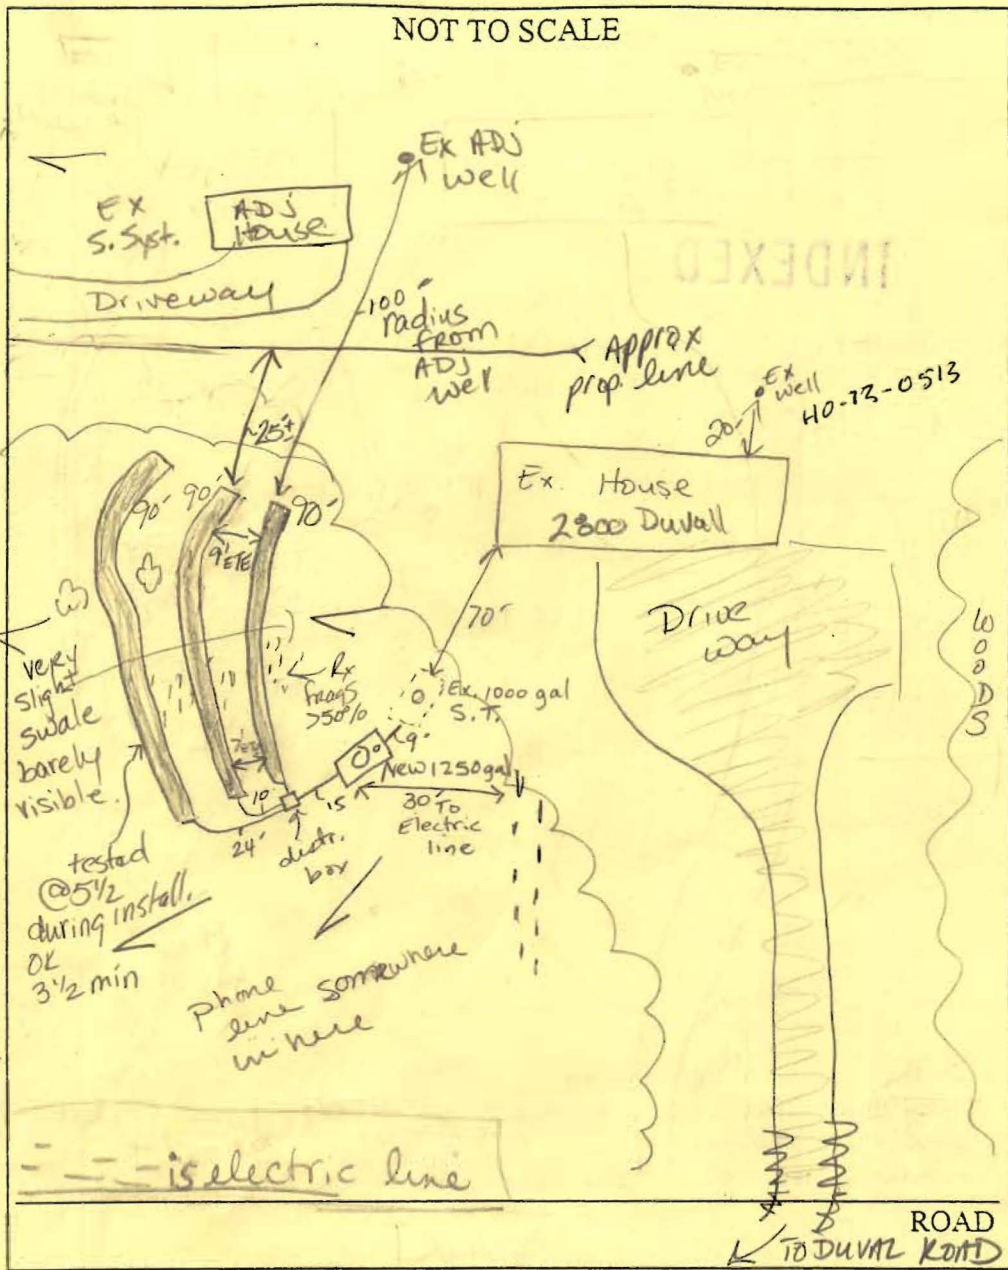 NOT TO SCALE
Ex ADJ
well
EX
S. Syst.
ADJ
House
Driveway
100'
radius
from
ADJ
well
Approx
prop. line
INDEXED
Ex
well
HO-73-0513
20'
~25'±
90'
90'
90'
9' ETE
Ex. House
2800 Duvall
70'
Drive
way
WOODS
very
slight
swale
barely
visible.
Rx
frags
>50%
Ex. 1000 gal
S.T.
9'
New 1250 gal
10
15
24'
distr.
box
30' To
Electric
line
tested
@ 5 1/2
during install.
OK
3 1/2 min
phone
line somewhere
in here
is electric line
ROAD
TO DUVAL ROAD